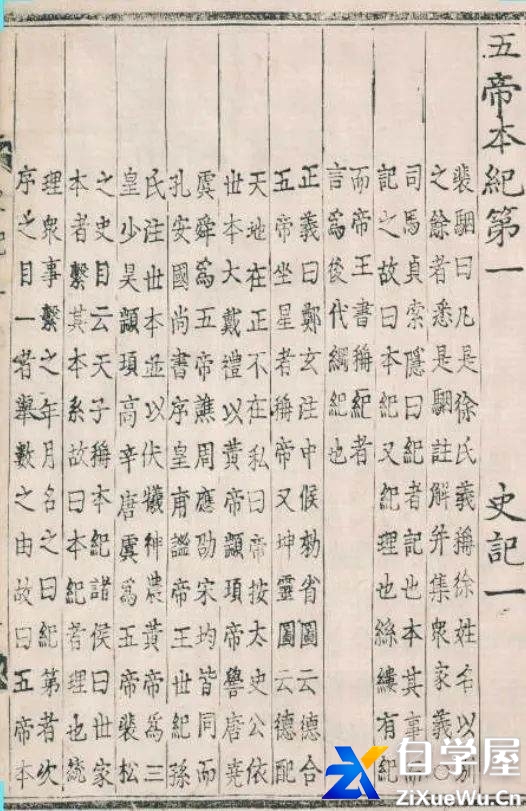 五帝本紀第一 史記一
裴駰曰凡是徐氏義稱徐姓名以別
之餘者悉是駰註解并集衆家義〇
司馬貞索隱曰紀者記也本其事而
記之故曰本紀又紀理也絲縷有紀
而帝王書稱紀者
言爲後代綱紀也
正義曰鄭玄注中候勑省圖云德合
五帝坐星者稱帝又坤靈圖云德配
天地在正不在私曰帝按太史公依
世本大戴禮以黃帝顓頊帝嚳唐堯
虞舜爲五帝譙周應劭宋均皆同而
孔安國尚書序皇甫謐帝王世紀孫
氏注世本並以伏犧神農黃帝爲三
皇少昊顓頊高辛唐虞爲五帝裴松
之史目云天子稱本紀諸侯曰世家
本者繫其本系故曰本紀者理也統
理衆事繫之年月名之曰紀第者次
序之目一者舉數之由故曰五帝本
自学屋
ZiXueWu.Cn